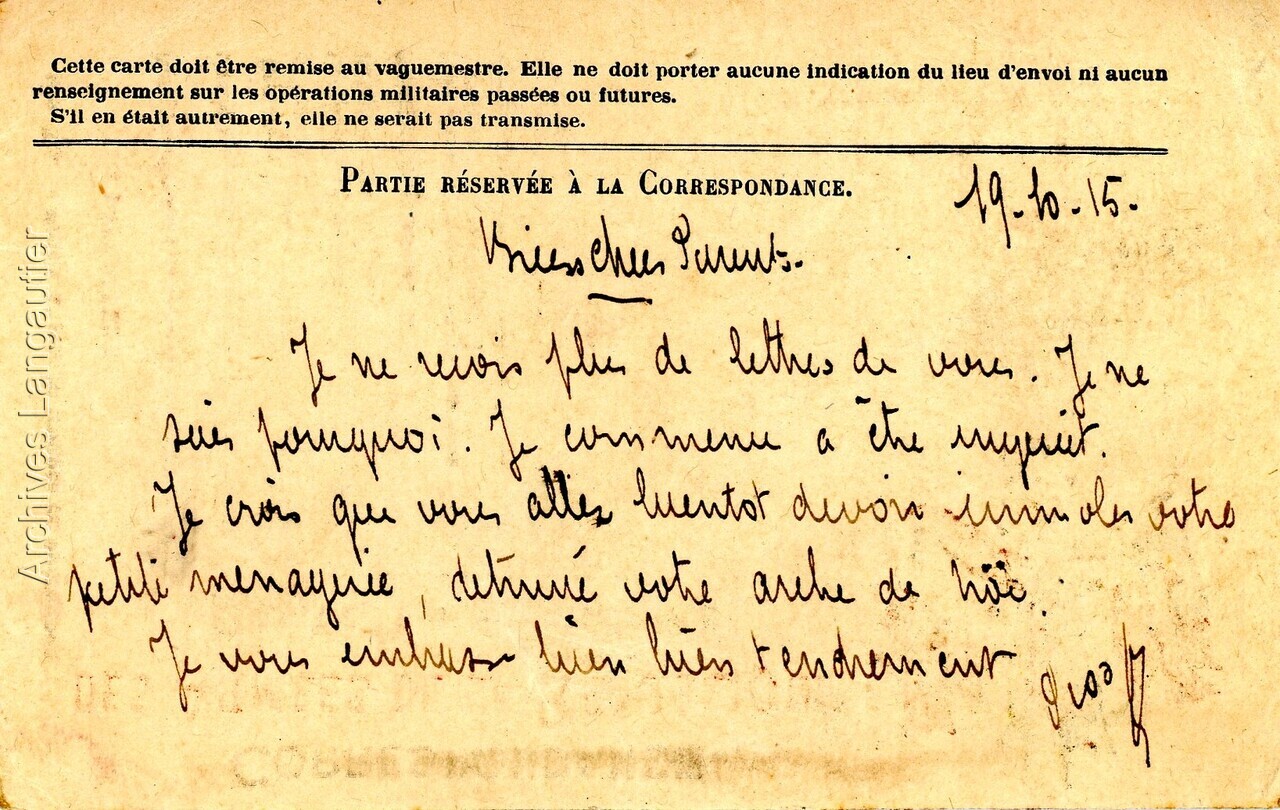 Cette carte doit être remise au vaguemestre. Elle ne doit porter aucune indication du lieu d'envoi ni aucun
renseignement sur les opérations militaires passées ou futures.
S'il en était autrement, elle ne serait pas transmise.
PARTIE RÉSERVÉE À LA CORRESPONDANCE.
19-10-15-
Biens chers Parents.
Je ne reçois plus de lettres de vous. Je ne
sais pourquoi. Je commence a être inquiet.
Je crois que vous allez bientot devoir immoler votre
petite menagerie, detruire votre arche de Noë.
Je vous embrasse bien bien tendrement
Archives Langautier